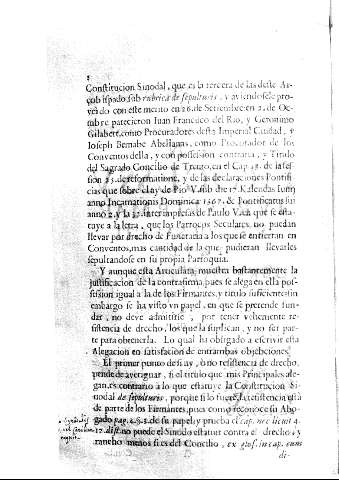 Constitucion Sinodal, que es la tercera de las deste Ar-
çobispado sub rubrica de sepulturis, y aviendose pro-
veido con este mento en 26. de Setiembre en 2. de Oc-
tubre parecieron Juan Francisco del Rio, y Geronimo
Gilabert, como Procuradores desta Imperial Ciudad, y
Joseph Bernabe Abellanas, como Procurador de los
Conventos della, y con possession contraria, y Titulo
del Sagrado Concilio de Trento, en el Cap. 13. de la ses-
sion 25. de reformatione, y de las declaraciones Pontifi-
cias que sobre el ay de Pio V. sub die 17. Kalendas Iunij
anno Incarnationis Dominicæ 1567. & Pontificatus sui
anno 2. y la 37. inter impressas de Paulo V. en que se esta-
tuye a la letra, que los Parrocos Seculares, no puedan
llevar por drecho de Funeraria a los que se entierran en
Conventos, mas cantidad de la que pudieran llevarles
sepultandose en su propia Parroquia.
Y aunque esta Articulata muestra bastantemente la
justificacion de la contrafirma, pues se alega en ella pos-
session igual a la de los Firmantes, y titulo suficiente: sin
embargo se ha visto vn papel, en que se pretende fun-
dar, no deve admitirse, por tener vehemente re-
sistencia de drecho, los que la suplican, y no ser par-
te para obtenerla. Lo qual ha obligado a escrivir esta
Alegacion en satisfacion de entrambas objeciones.
El primer punto de si ay, ò no resistencia de drecho,
pende de averiguar, si el titulo que mis Principales ale-
gan, es contrario a lo que estatuye la Constitucion Si-
nodal de sepulturis, porque si lo fuere, la resistencia està
de parte de los Firmantes, pues como reconoce su Abo-
gado pag. 2. § 3. de su papel, y prueba el cap. nec licuit 4.
17. dist. no puede el Sinodo estatuir contra el drecho, y
tancho menos si es del Concilio, ex glos. in cap. cum
di-